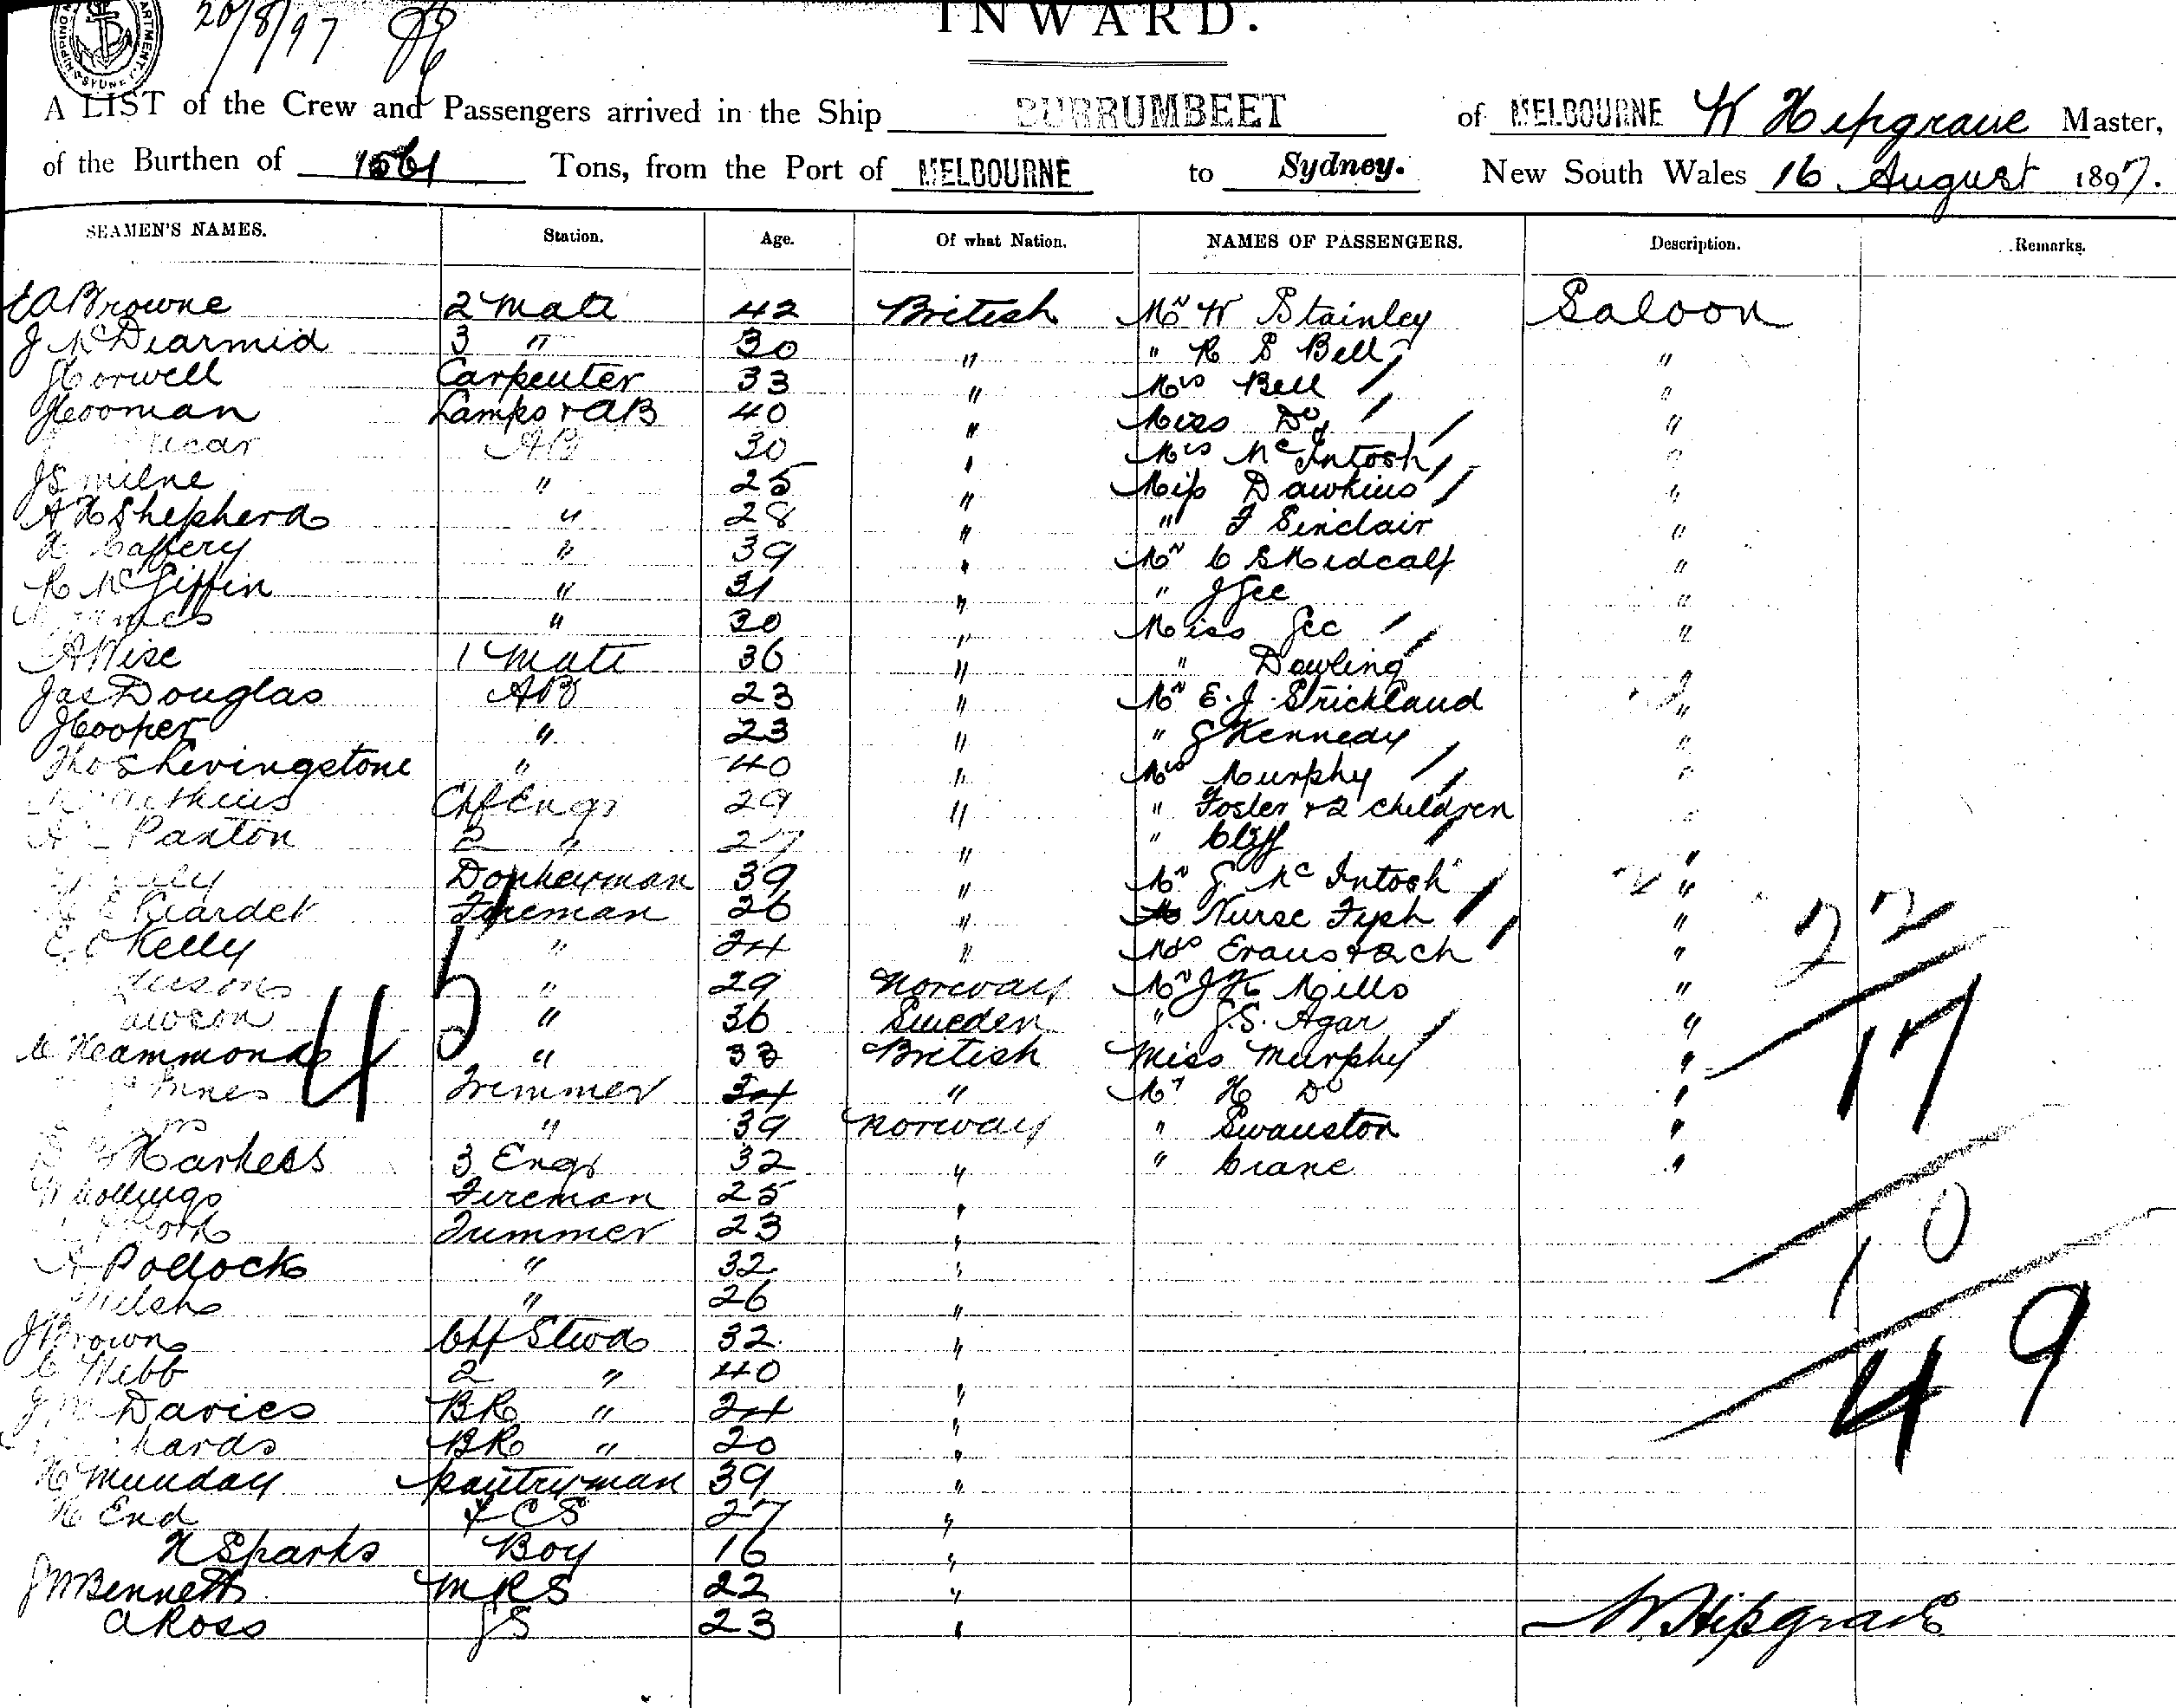 20/8/97
INWARD.
A LIST of the Crew and Passengers arrived in the Ship BURRUMBEET of MELBOURNE W Hipgrave Master,
of the Burthen of Tons, from the Port of MELBOURNE to Sydney. New South Wales 16 August 1897.
SEAMEN'S NAMES. Station. Age. Of what Nation. NAMES OF PASSENGERS. Description. Remarks.
EA Browne 2 Mate 42 British Mr W Stainley Saloon
J McDearmid 3 " 30 " " R S Bell "
J Corwell Carpenter 33 " Mrs Bell "
J Cooman Lamps + AB 40 " Miss Do "
AB 30 " Mrs McIntosh "
JS Milne " 25 " Miss Dawkins "
A H Shepherd " 28 " " F Sinclair "
Caffery " 39 " Mr C S Medcalf "
R McGiffin " 31 " " J Gee "
" 30 " Miss Gee "
A Wise 1 Mate 36 " " Dowling "
Jas Douglas AB 23 " Mr E.J. Strickland "
J Cooper " 23 " " G Kennedy "
Thos Levingstone " 40 " Mrs Murphy "
Chf Engr 29 " " Foster + 2 children "
A Paxton 2 " 27 " " Cliff "
Donkeyman 39 " Mr G. McIntosh "
Fireman 26 " Nurse Fysh " 22
E O Kelly " 24 " Mrs Evans + 2 ch "
" 29 Norway Mr J H Mills "
" 36 Sweden " G.S. Agar " 17
C Hammond " 33 British Miss Murphy "
45
Trimmer 34 " Mr H Do "
" 39 Norway " Swanston "
Harkess 3 Engr 32 " " Crane "
W Collings Fireman 25 "
Trimmer 23 " 10
A Pollock " 32 "
Welsh " 26 "
J Brown Chf Stwd 32 "
C Webb 2 " 40 " 49
J M Davies BR " 24 "
BR " 20 "
H Munday Pantryman 39 "
H End FCS 27 "
H Sparks Boy 16 "
J W Bennett MRS 22 "
A Ross JS 23 " W Hipgrave